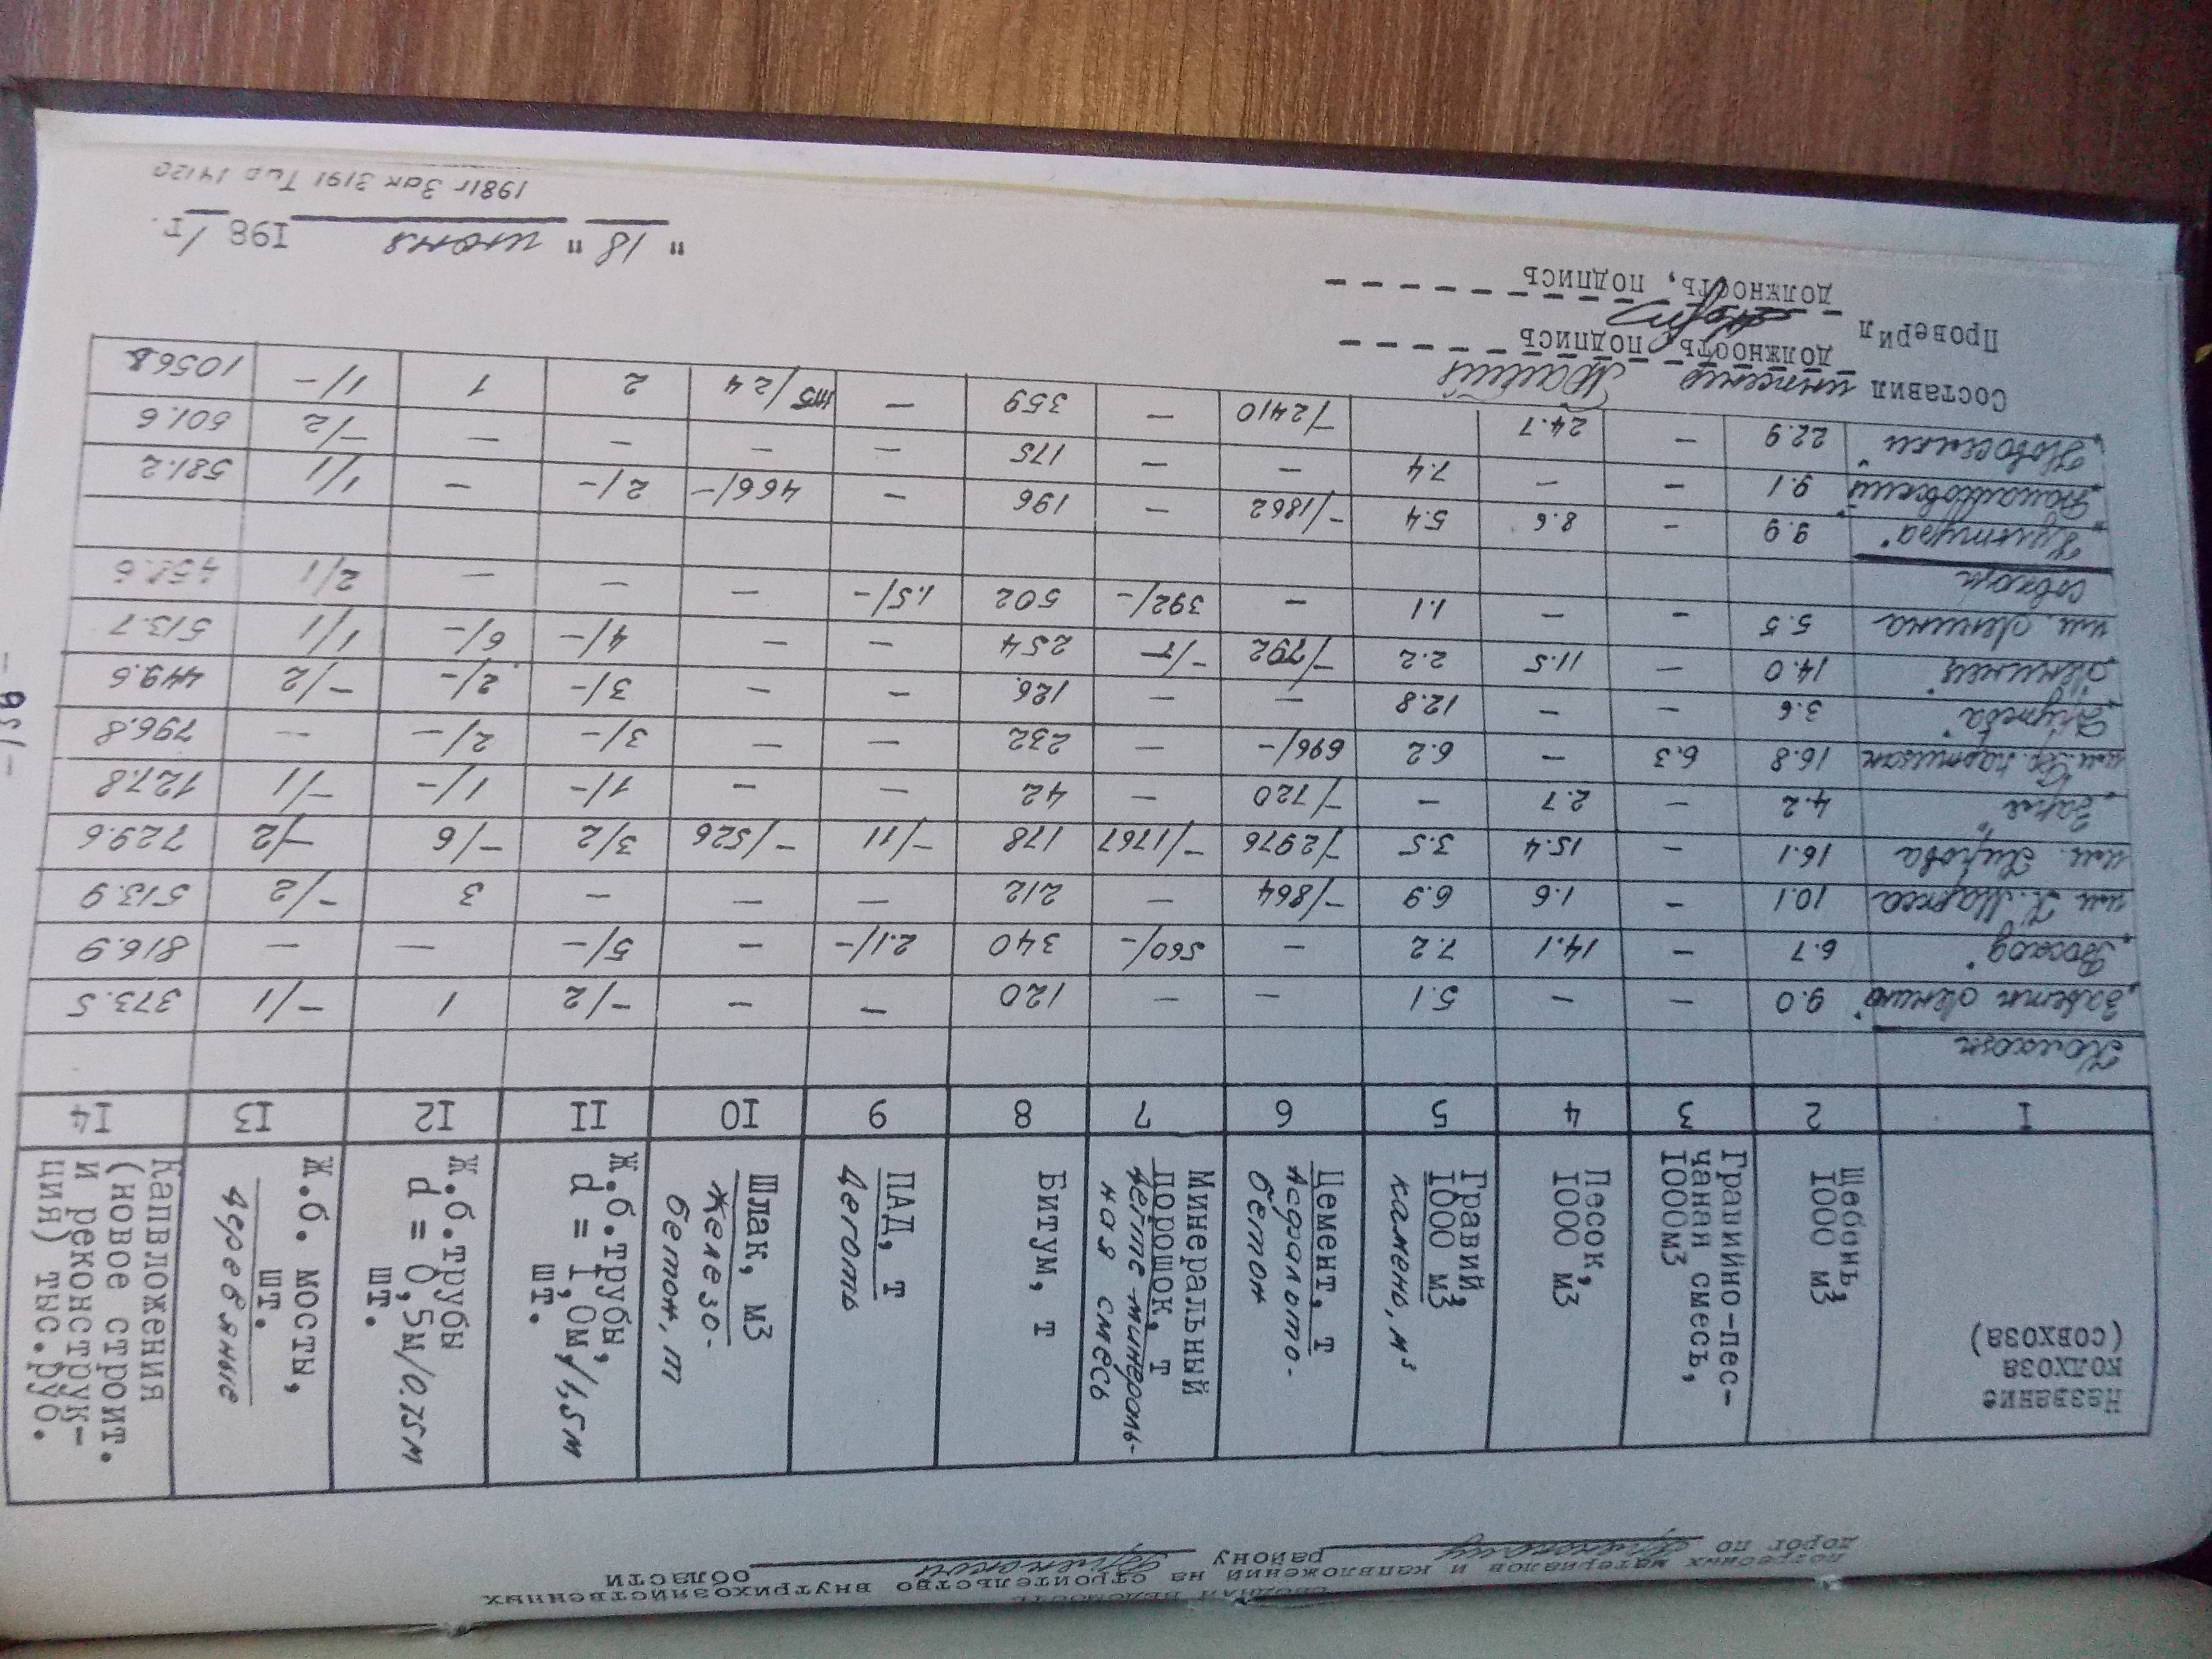 СВОДНАЯ ВЕДОМОСТЬ
потребных материалов и капвложений на строительство внутрихозяйственных
дорог по району области
Название колхоза (совхоза) | Щебень, 1000 м3 | Гравийно-песчаная смесь, 1000м3 | Песок, 1000 м3 | Гравий, 1000 м3 камень, м³ | Цемент, т Асфальтобетон | Минеральный порошок, т дегте-минеральная смесь | Битум, т | ПАД, т Деготь | Шлак, м3 Железобетон, т | Ж.б.трубы, d = 1,0м/1,5м шт. | Ж.б.трубы d = 0,5м/0.75м шт. | Ж.б. мосты, шт. деревяные | Капвложения (новое строит. и реконструкция) тыс.руб.
I | 2 | 3 | 4 | 5 | 6 | 7 | 8 | 9 | IO | II | I2 | I3 | I4
Колхозы
"Заветы Ленина" | 9.0 | – | – | 5.1 | – | – | 120 | – | – | –/2 | 1 | –/1 | 373.5
"Восход" | 6.7 | – | 14.1 | 7.2 | – | 560/– | 340 | 2.1/– | – | 5/– | – | – | 816.9
им. К. Маркса | 10.1 | – | 1.6 | 6.9 | –/864 | – | 212 | – | – | – | 3 | –/2 | 513.9
им. Кирова | 16.1 | – | 15.4 | 3.5 | –/2976 | –/1767 | 178 | –/11 | –/526 | 3/2 | –/6 | –/2 | 729.6
"Заря" | 4.2 | – | 2.7 | – | –/720 | – | 42 | – | – | 1/– | 1/– | –/1 | 127.8
им. Кр. партизан | 16.8 | 6.3 | – | 6.2 | 696/– | – | 232 | – | – | 3/– | 2/– | – | 796.8
3.6 | – | – | 12.8 | – | – | 126 | – | – | 3/– | 2/– | –/2 | 449.6
"Ленинец" | 14.0 | – | 11.5 | 2.2 | –/792 | 254 | – | – | 4/– | 6/– | 1/1 | 513.7
им. Ленина | 5.5 | – | – | 1.1 | – | 392/– | 502 | 1.5/– | – | – | – | 2/1
совхозы
"Культура" | 9.9 | – | 8.6 | 5.4 | –/1862 | – | 196 | – | 466/– | 2/– | – | 1/1 | 581.2
9.1 | – | – | 7.4 | – | – | 175 | – | – | – | – | –/2 | 501.6
"Новоселки" | 22.9 | – | 24.7 | –/2410 | – | 359 | – | 2 | 1 | 1/–
Составил инженер
должность, подпись
Проверил
должность, подпись
"18" июня 1981г.
1981г Зак 3191 Тир 14120
- 156 -